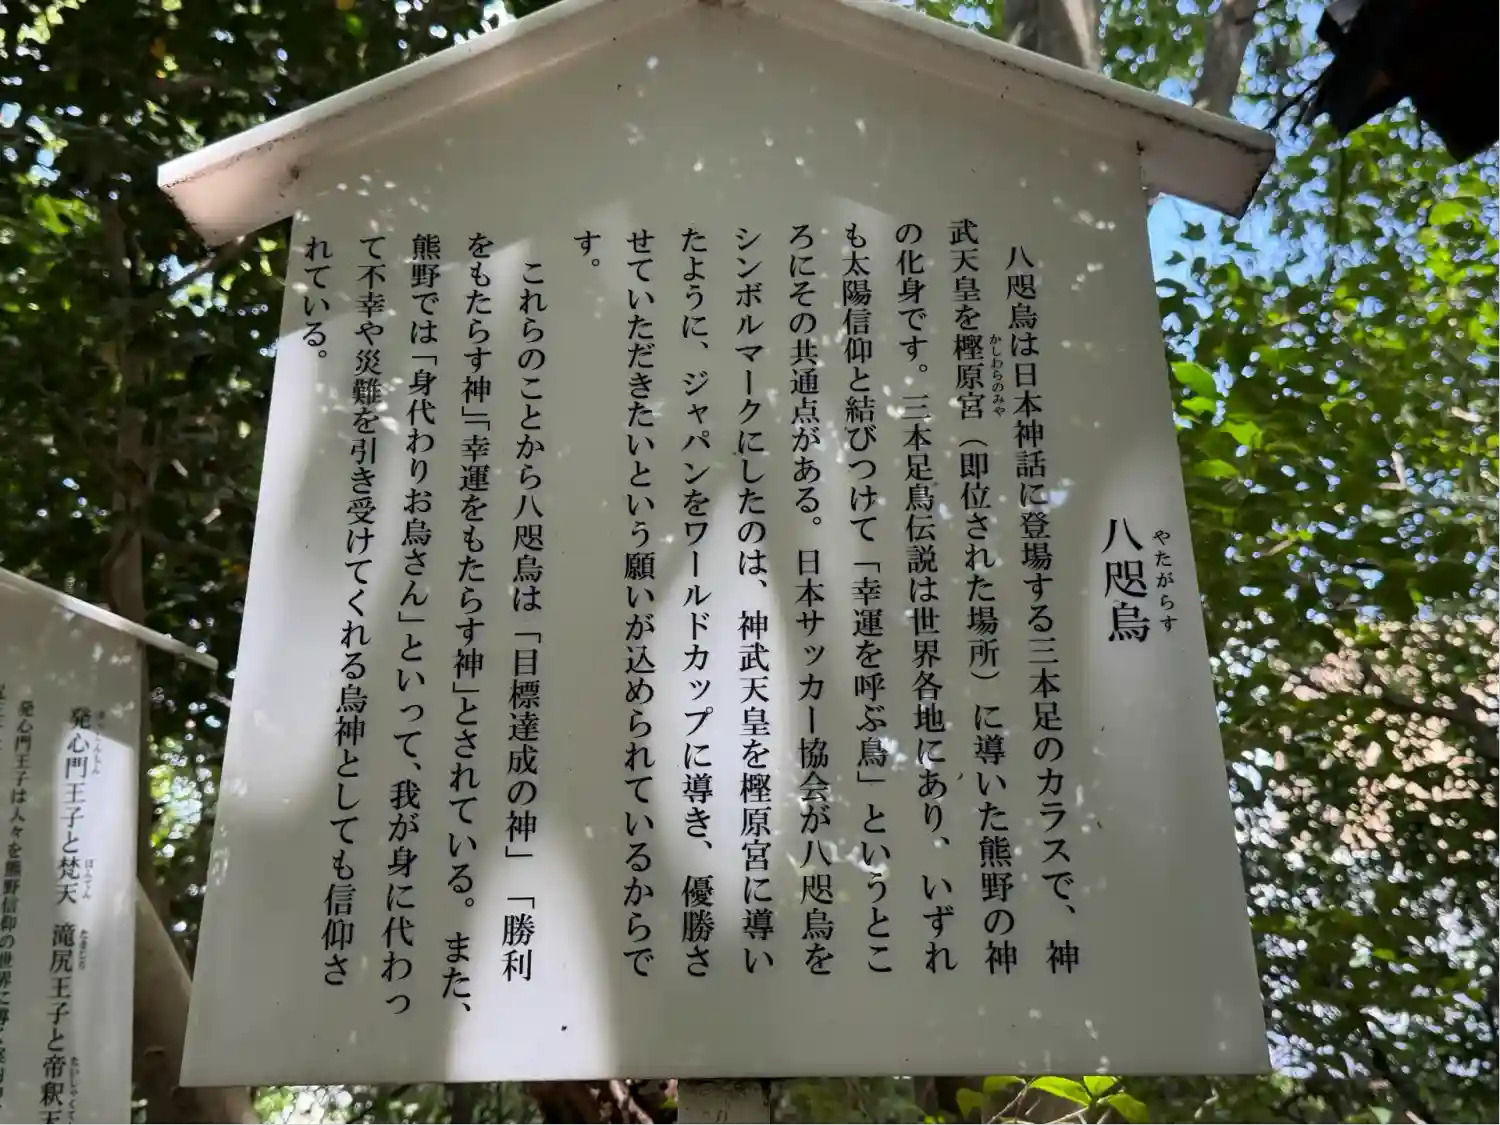 八咫烏
やたがらす
八咫烏は日本神話に登場する三本足のカラスで、神
武天皇を樫原宮（即位された場所）に導いた熊野の神
かしわらのみや
の化身です。三本足鳥伝説は世界各地にあり、いずれ
も太陽信仰と結びつけて「幸運を呼ぶ鳥」というとこ
ろにその共通点がある。日本サッカー協会が八咫烏を
シンボルマークにしたのは、神武天皇を樫原宮に導い
たように、ジャパンをワールドカップに導き、優勝さ
せていただきたいという願いが込められているからで
す。
これらのことから八咫烏は「目標達成の神」「勝利
をもたらす神」「幸運をもたらす神」とされている。また、
熊野では「身代わりお烏さん」といって、我が身に代わっ
て不幸や災難を引き受けてくれる烏神としても信仰さ
れている。
発心門王子と梵天 滝尻王子と帝釈天
発心門王子は人々を熊野信仰の世界に導く